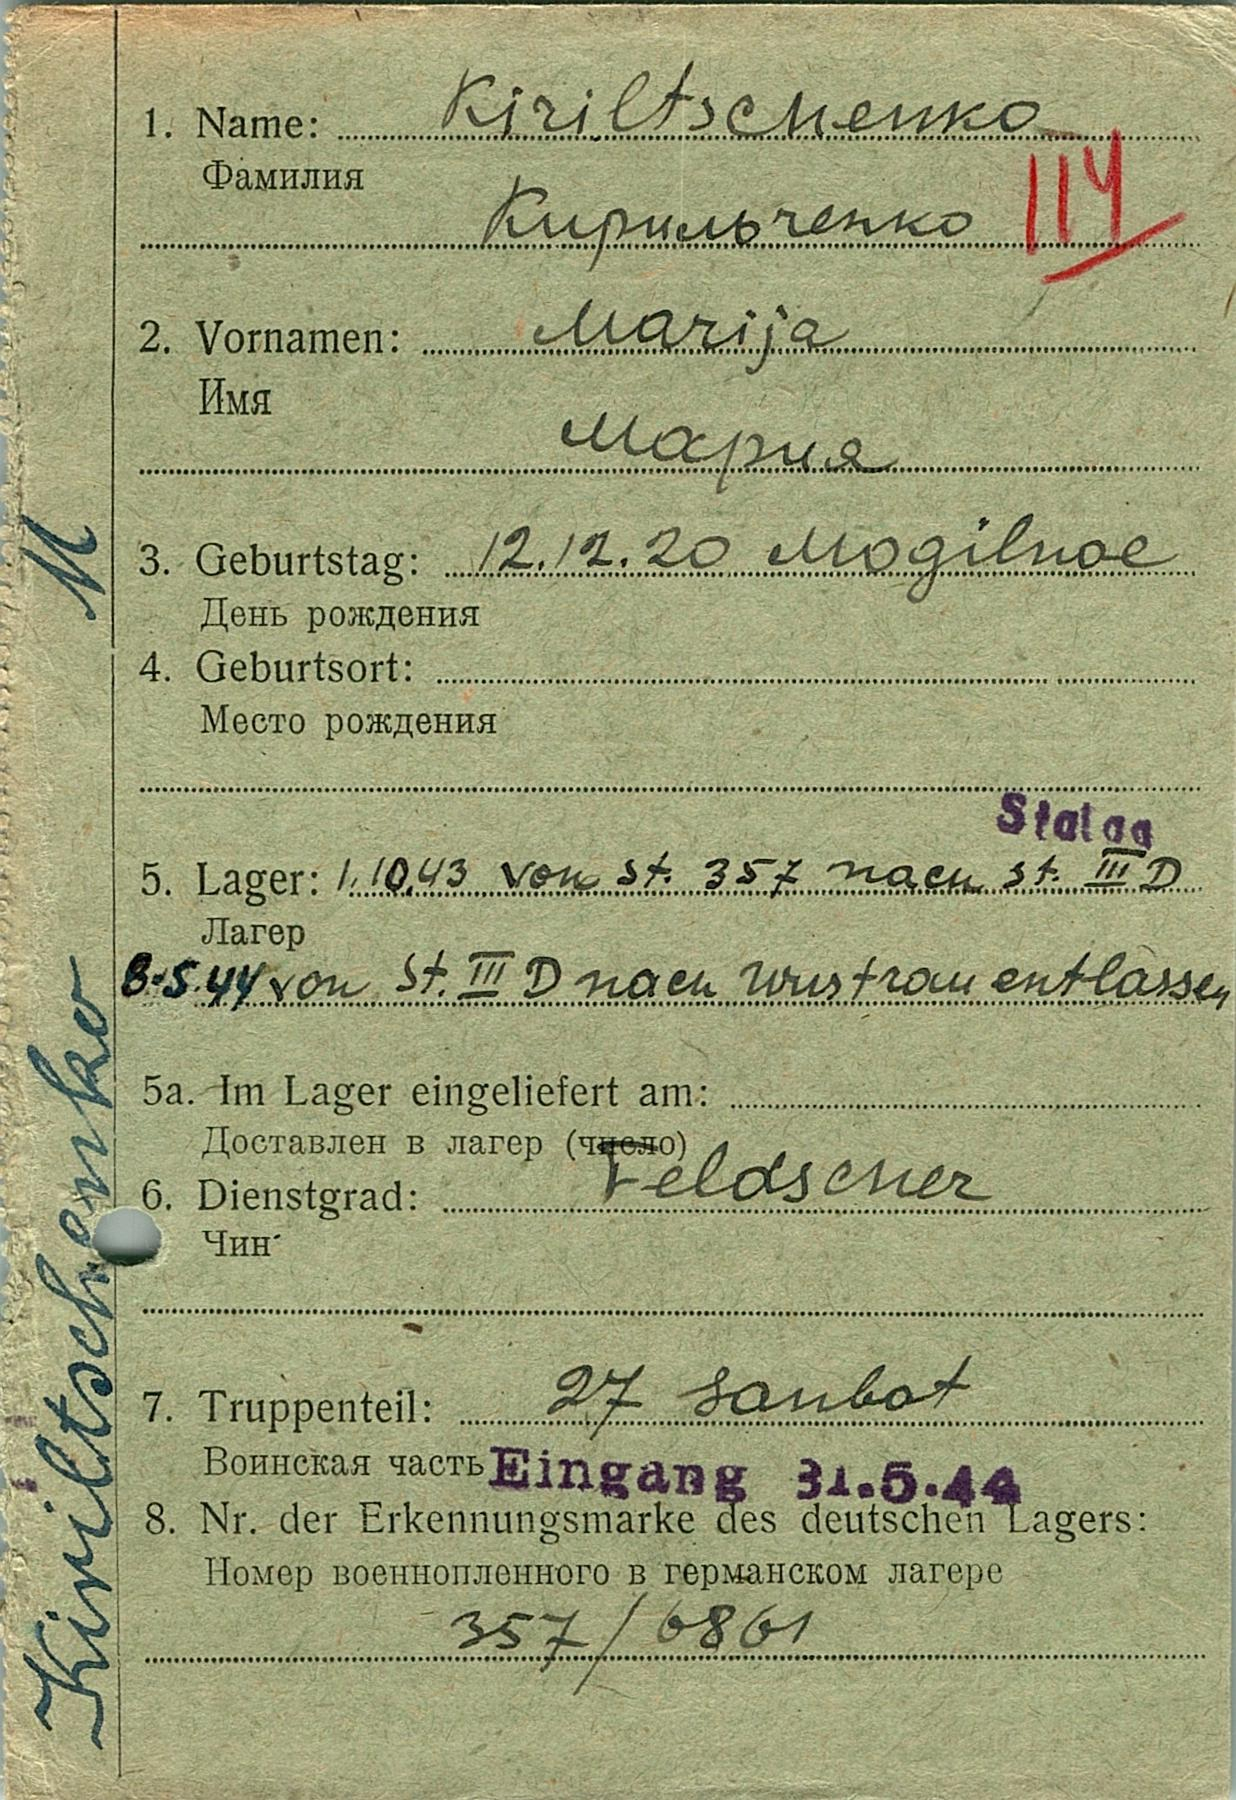 1. Name: Kiriltschenko
Фамилия
Кирильченко 114
2. Vornamen: Marija
Имя
Мария
3. Geburtstag: 12.12.20 Mogilnoe
День рождения
4. Geburtsort:
Место рождения
Stalag
5. Lager: 1.10.43 von St. 357 nach St. III D
Лагер
8.5.44 von St. III D nach Wustrau entlassen
5a. Im Lager eingeliefert am:
Доставлен в лагер (число)
6. Dienstgrad: Feldscher
Чин
7. Truppenteil: 27 Sanbat
Воинская часть Eingang 31.5.44
8. Nr. der Erkennungsmarke des deutschen Lagers:
Номер военнопленного в германском лагере
357/6861
Kiriltschenko M